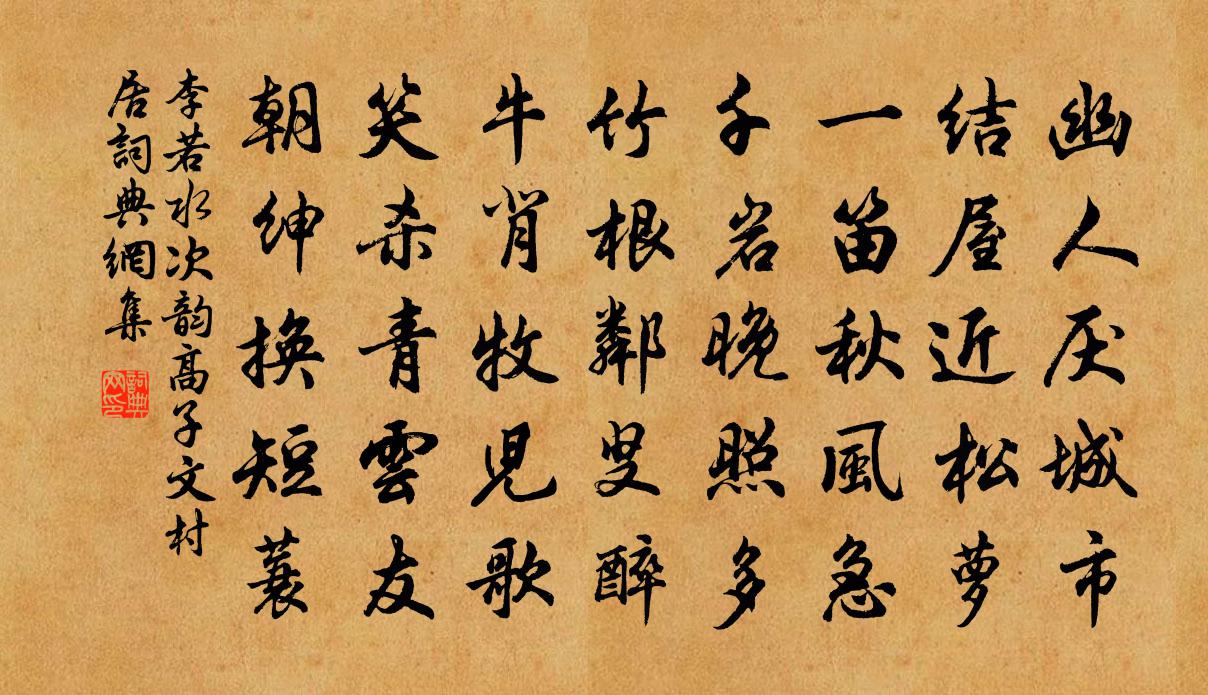 幽人厌城市
结屋近松萝
一笛秋風急
千岩晚照多
竹根鄰叟醉
牛背牧児歌
笑杀青雲友
朝绅换短蓑
李若水次韵高子文村
居詞典網集
詞典
网印